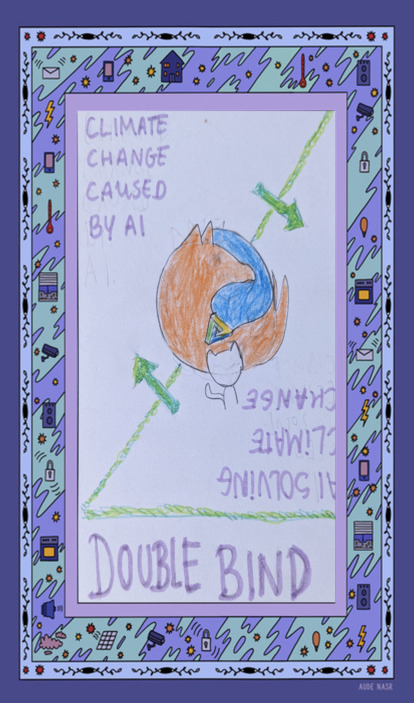 CLIMATE
CHANGE
CAUSED
BY AI
AI SOLVING
CLIMATE
CHANGE
DOUBLE BIND
AUDE NASR